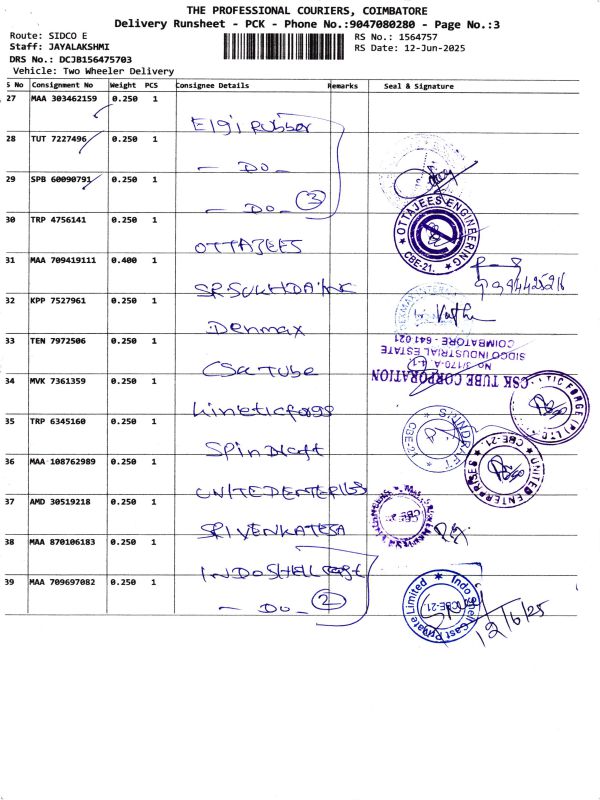 THE PROFESSIONAL COURIERS, COIMBATORE
Delivery Runsheet - PCK - Phone No.:9047080280 - Page No.:3
Route: SIDCO E
Staff: JAYALAKSHMI
DRS No.: DCJB156475703
Vehicle: Two Wheeler Delivery
RS No.: 1564757
RS Date: 12-Jun-2025
S No Consignment No Weight PCS Consignee Details Remarks Seal & Signature
27 MAA 303462159 0.250 1 Elgi Rubber
28 TUT 7227496 0.250 1 - Do -
29 SPB 60090791 0.250 1 - Do - 3
30 TRP 4756141 0.250 1 OTTAJEES
OTTAJEES ENGINEERING
CBE-21.
31 MAA 709419111 0.400 1 SR.SUKHDA INK
32 KPP 7527961 0.250 1 Denmax
33 TEN 7972506 0.250 1 CSK TUBE
CSK TUBE CORPORATION
No. 3/170-A,
SIDCO INDUSTRIAL ESTATE
COIMBATORE - 641 021
34 MVK 7361359 0.250 1 kineticforge
35 TRP 6345160 0.250 1 SpinDraft
SPINDRAFT
CBE-21
36 MAA 108762989 0.250 1 UNITEDENTERPRISES
UNITED ENTERPRISES
CBE-21.
37 AMD 30519218 0.250 1 SRI VENKATESA
38 MAA 870106183 0.250 1 INDOSHELL cast
39 MAA 709697082 0.250 1 - Do - 2
Indo Shell Cast Private Limited
CBE-21
12/6/25